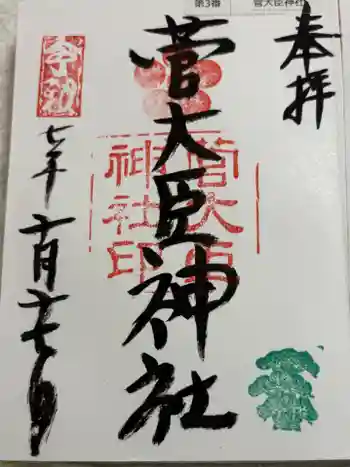 第3番 菅大臣神社
奉拝
菅大臣神社
菅大臣
神社印
令和
七年十一月十七日